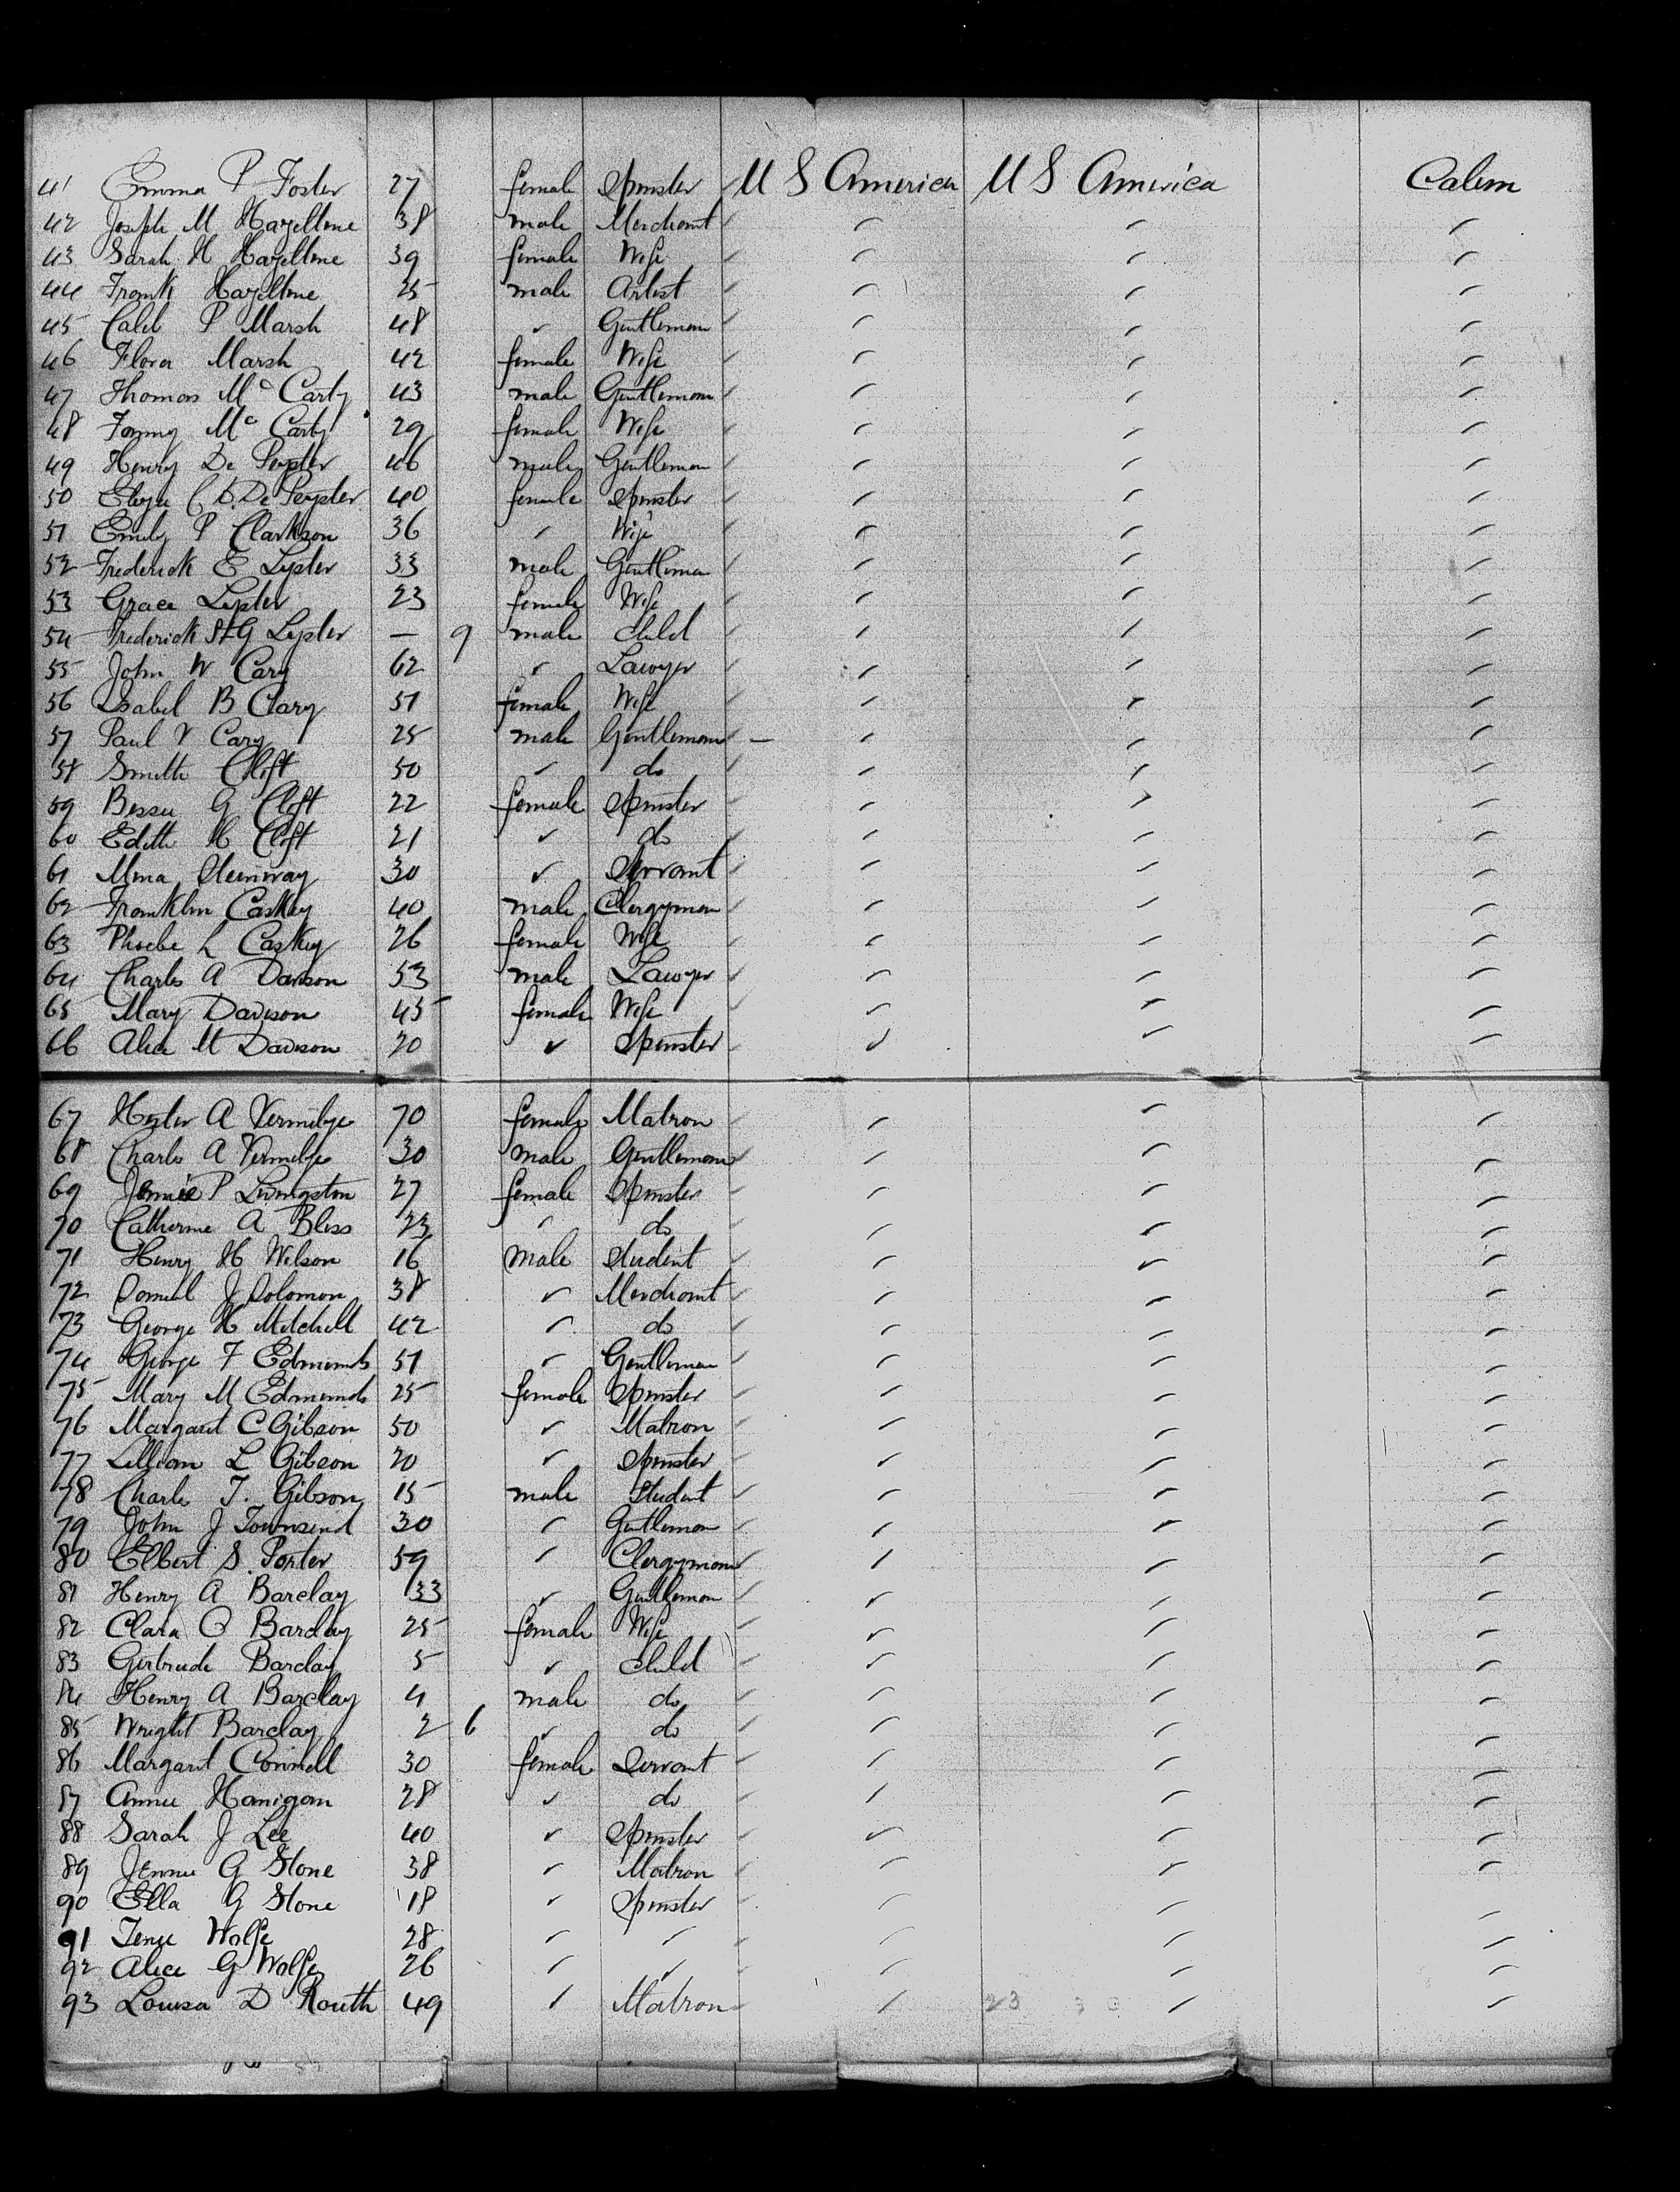 41 Emma P Foster 27 female Spinster U S America U S America Cabin
42 Joseph M Hazeltine 38 male Merchant " " "
43 Sarah H Hazeltine 39 female Wife " " "
44 Frank Hazeltine 25 male Artist " " "
45 Caleb P Marsh 48 " Gentleman " " "
46 Flora Marsh 42 female Wife " " "
47 Thomas Mc Carty 43 male Gentleman " " "
48 Fanny Mc Carty 29 female Wife " " "
49 Henry De Peyster 46 male Gentleman " " "
50 De Peyster 40 female Spinster " " "
51 Emily P Clarkson 36 " Wife " " "
52 Frederick E Lyster 33 male Gentleman " " "
53 Grace Lyster 23 female Wife " " "
54 Frederick St G Lyster — 9 male Child " " "
55 John W Cary 62 " Lawyer " " "
56 Isabel B Cary 51 female Wife " " "
57 Paul V Cary 25 male Gentleman — " " "
58 Smith Clift 50 " do " " "
59 Bessie G Clift 22 female Spinster " " "
60 Edith H Clift 21 " do " " "
61 Mina 30 " Servant " " "
62 Franklin Caskey 40 male Clergyman " " "
63 Phoebe L Caskey 26 female Wife " " "
64 Charles A Davison 53 male Lawyer " " "
65 Mary Davison 45 female Wife " " "
66 Alice M Davison 20 " Spinster " " "
67 Hester A Vermilye 70 female Matron " " "
68 Charles A Vermilye 30 male Gentleman " " "
69 Jennie P Livingston 27 female Spinster " " "
70 Catherine A Bliss 23 " do " " "
71 Henry H Wilson 16 male Student " " "
72 J Solomon 38 " Merchant " " "
73 George H Mitchell 42 " do " " "
74 George F Edmunds 51 " Gentleman " " "
75 Mary M Edmunds 25 female Spinster " " "
76 Margaret C Gibson 50 " Matron " " "
77 Lilliam L Gibson 20 " Spinster " " "
78 Charles T. Gibson 15 male Student " " "
79 John J Townsend 30 " Gentleman " " "
80 Elbert S. Porter 59 " Clergyman " " "
81 Henry A Barclay 33 " Gentleman " " "
82 Clara O Barclay 25 female Wife " " "
83 Gertrude Barclay 5 " Child " " "
84 Henry A Barclay 4 male do " " "
85 Wright Barclay 2 6 " do " " "
86 Margaret Connell 30 female Servant " " "
87 Annie Hanigan 28 " do " " "
88 Sarah J Lee 40 " Spinster " " "
89 Jennie G Stone 38 " Matron " " "
90 Ella G Stone 18 " Spinster " " "
91 Wolfe 28 " " " " "
92 Alice G Wolfe 26 " " " " "
93 Louisa D Routh 49 " Matron " " "